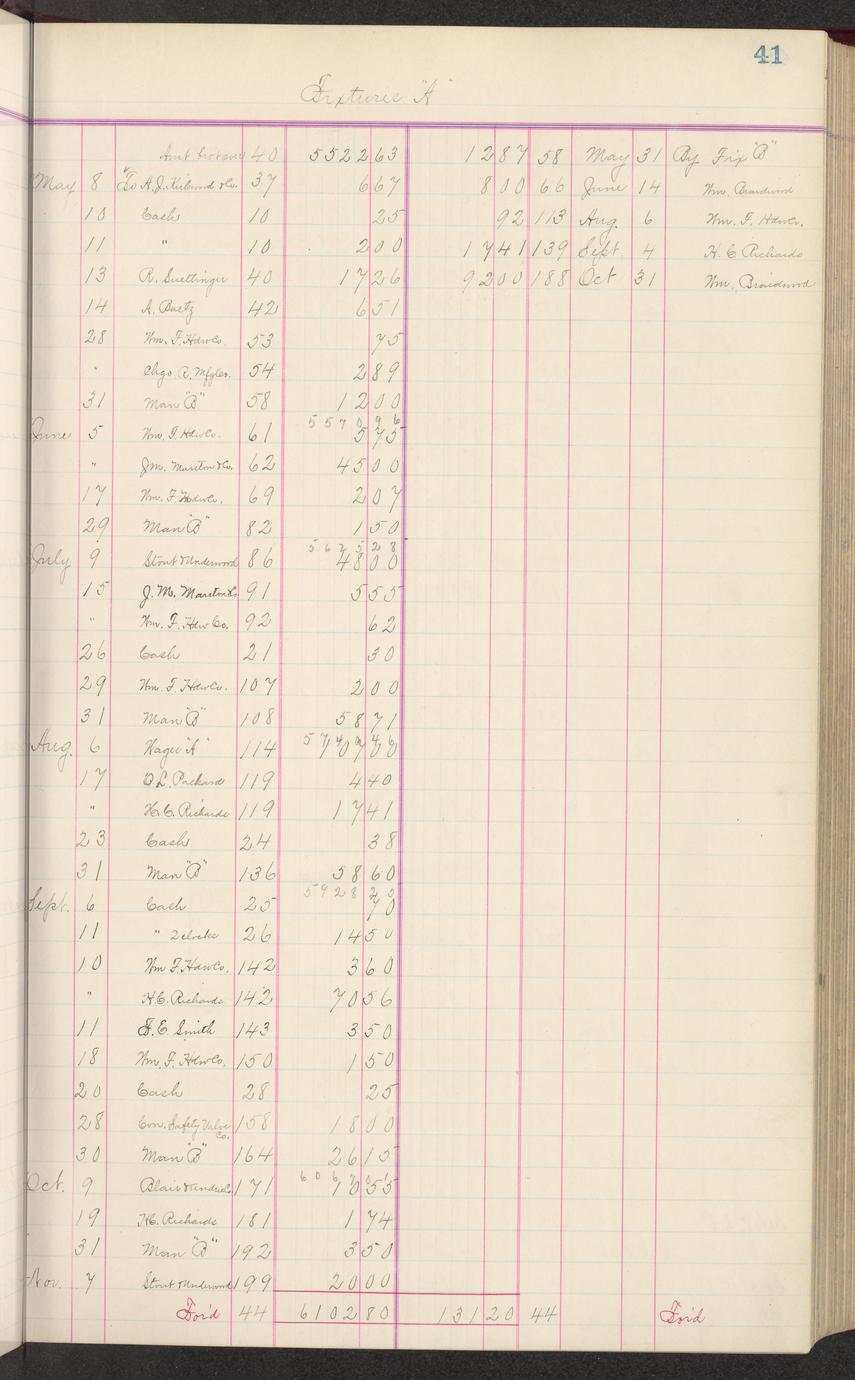 41
Fixtures "A"
Amt brot over 40 5522 63 12 87 58 May 31 By Fix "B"
May 8 To A. J. Kirkwood & Co. 37 6 67 8 00 66 June 14 Wm. Braidwood
10 Cash 10 25 92 113 Aug. 6 Wm. F. Hdw Co.
11 " 10 2 00 17 41 139 Sept. 4 H. C. Richards
13 R. Suettinger 40 17 26 92 00 188 Oct 31 Wm. Braidwood
14 A. Baetz 42 6 51
28 Wm. F. Hdw Co. 53 75
" Chgo R. Mfgles. 54 2 89
31 Man "B" 58 12 00
5570 96
June 5 Wm. F. Hdw Co. 61 5 75
" J. M. Marston & Co. 62 45 00
17 Wm. F. Hdw Co. 69 2 07
29 Man "B" 82 1 50
5625 28
July 9 Stout & Underwood 86 48 00
15 J. M. Marston & Co 91 5 55
" Wm. F. Hdw Co. 92 62
26 Cash 21 30
29 Wm. F. Hdw Co. 107 2 00
31 Man "B" 108 58 71
5740 46
Aug. 6 Wages "A" 114
17 O. L. Packard 119 4 40
" H. C. Richards 119 17 41
23 Cash 24 38
31 Man "B" 136 58 60
5928 25
Sept. 6 Cash 25 70
11 " 2 clocks 26 14 50
10 Wm F. Hdw Co. 142 3 60
" H. C. Richards 142 70 56
11 F. E. Smith 143 3 50
18 Wm. F. Hdw Co. 150 1 50
20 Cash 28 25
28 Con. Safety Valve Co. 158 18 00
30 Man "B" 164 26 15
6067 01
Oct. 9 171 10 55
19 H. C. Richards 181 1 74
31 Man "B" 192 3 50
Nov. 7 Stout & Underwood 199 20 00
For'd 44 6102 80 131 20 44 For'd